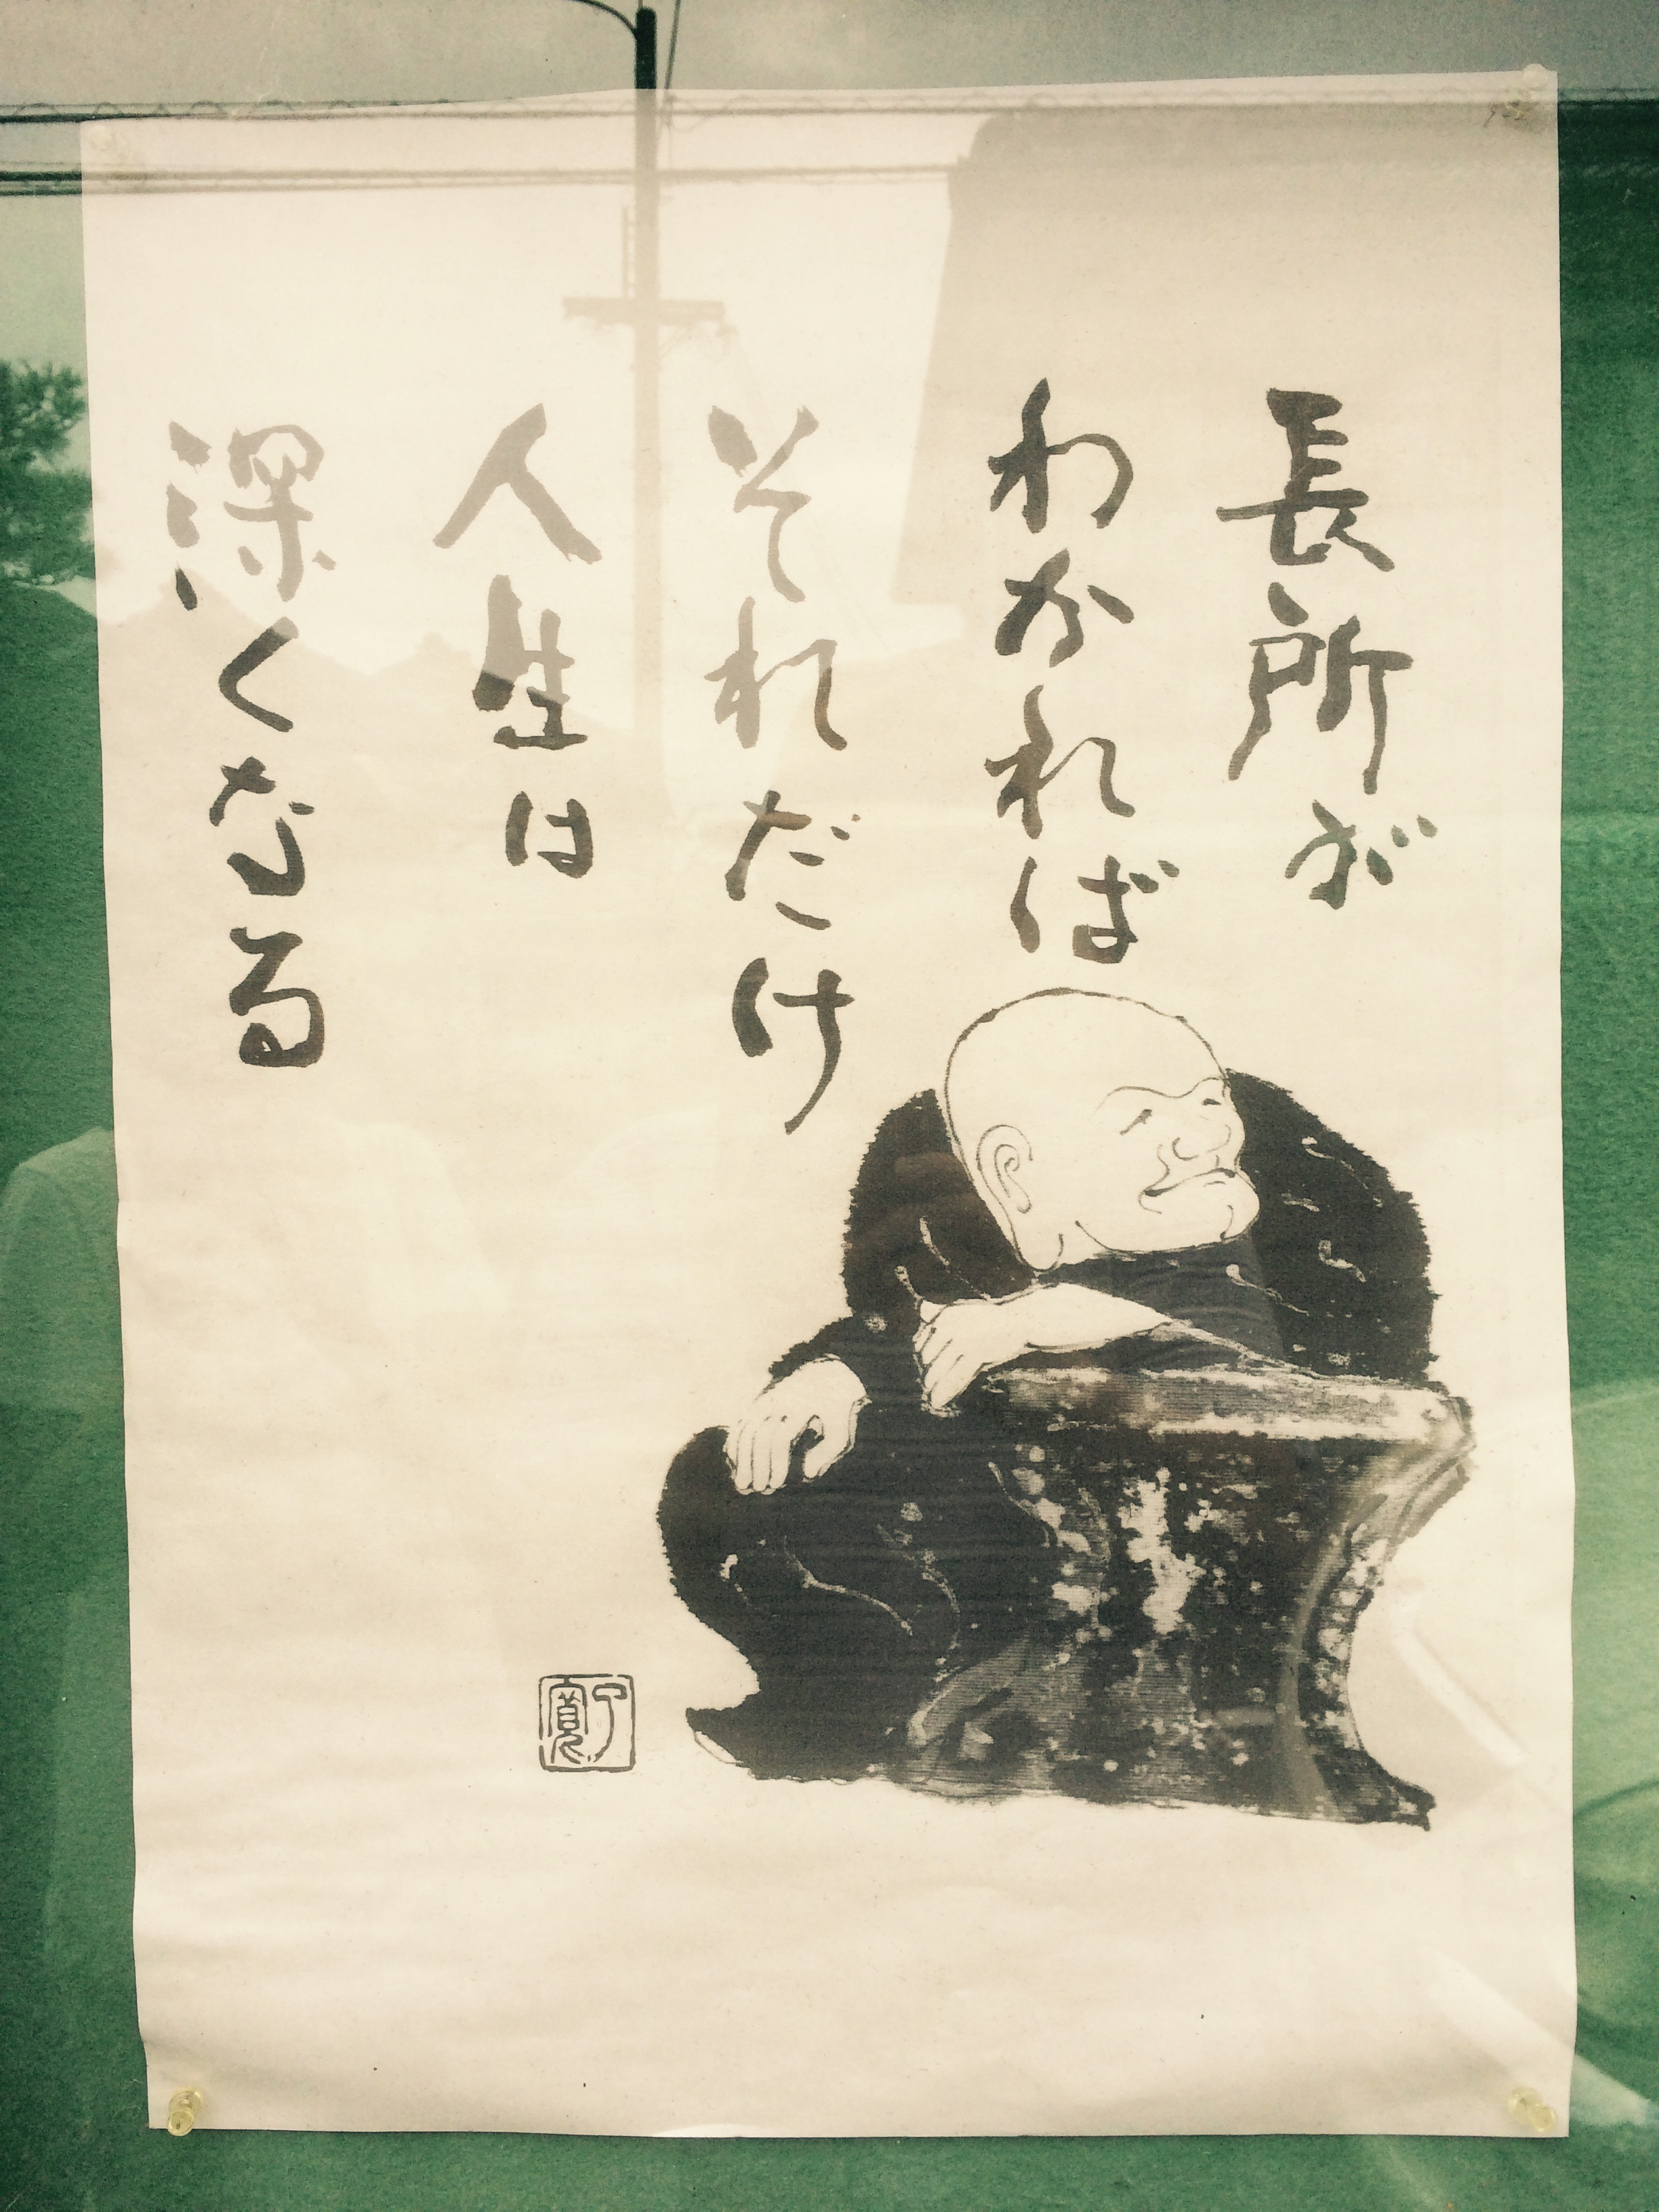 長所が
わかれば
それだけ
人生は
深くなる
了寛